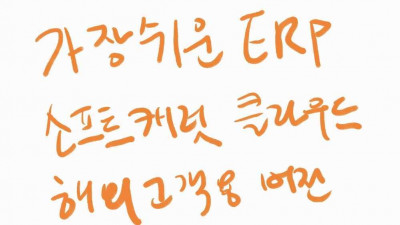 가장쉬운 ERP
소프트캐럿 클라우드
해외고객용 버전